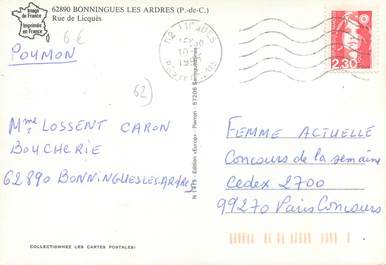 Image
de France
Imprimée
en France
62890 BONNINGUES LES ARDRES (P.-de-C.)
Rue de Licques
6 €
POUMON
62
62 LICQUES
2,30
Mme LOSSENT CARON
BOUCHERIE
62890 BONNINGUES-LES-ARDRES
FEMME ACTUELLE
Concours de la semaine
Cedex 2700
99270 Paris Concours
COLLECTIONNEZ LES CARTES POSTALES!